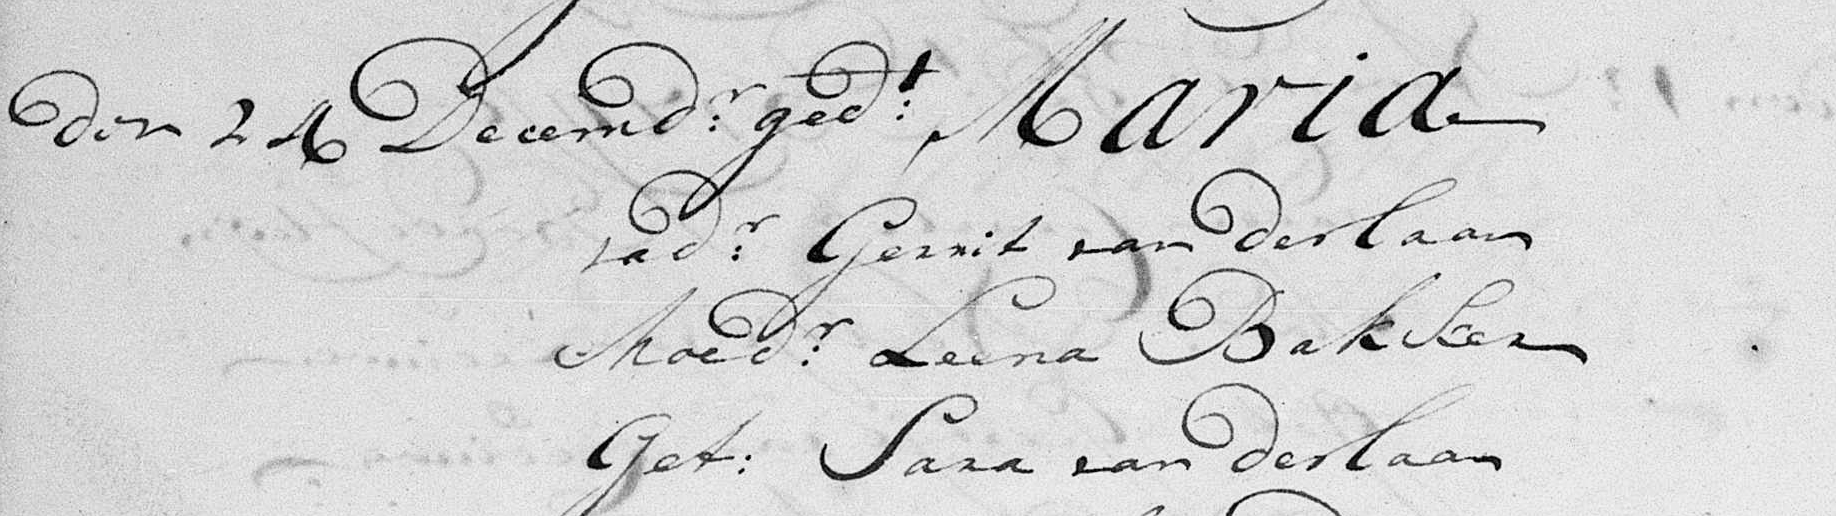 den 24 Decemdr: gedt: Maria
vadr: Gerrit van der laan
Moedr: Leena Bakker
Get: Sara van der laan